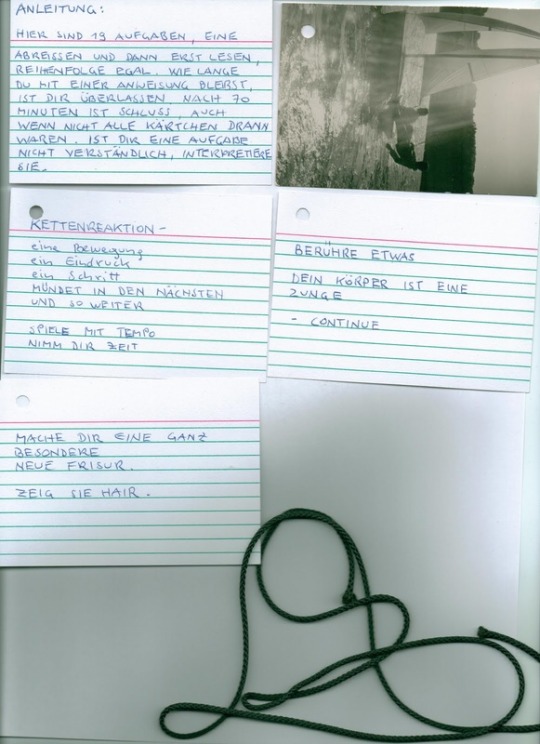 ANLEITUNG:
HIER SIND 19 AUFGABEN, EINE
ABREISSEN UND DANN ERST LESEN,
REIHENFOLGE EGAL. WIE LANGE
DU MIT EINER ANWEISUNG BLEIBST,
IST DIR ÜBERLASSEN. NACH 70
MINUTEN IST SCHLUSS, AUCH
WENN NICHT ALLE KÄRTCHEN DRANN
WAREN. IST DIR EINE AUFGABE
NICHT VERSTÄNDLICH, INTERPRETIERE
SIE.
KETTENREAKTION -
eine Bewegung
ein Eindruck
ein Schritt
MÜNDET IN DEN NÄCHSTEN
UND SO WEITER
SPIELE MIT TEMPO
NIMM DIR ZEIT
BERÜHRE ETWAS
DEIN KÖRPER IST EINE
ZUNGE
- CONTINUE
MACHE DIR EINE GANZ
BESONDERE
NEUE FRISUR.
ZEIG SIE HAIR.